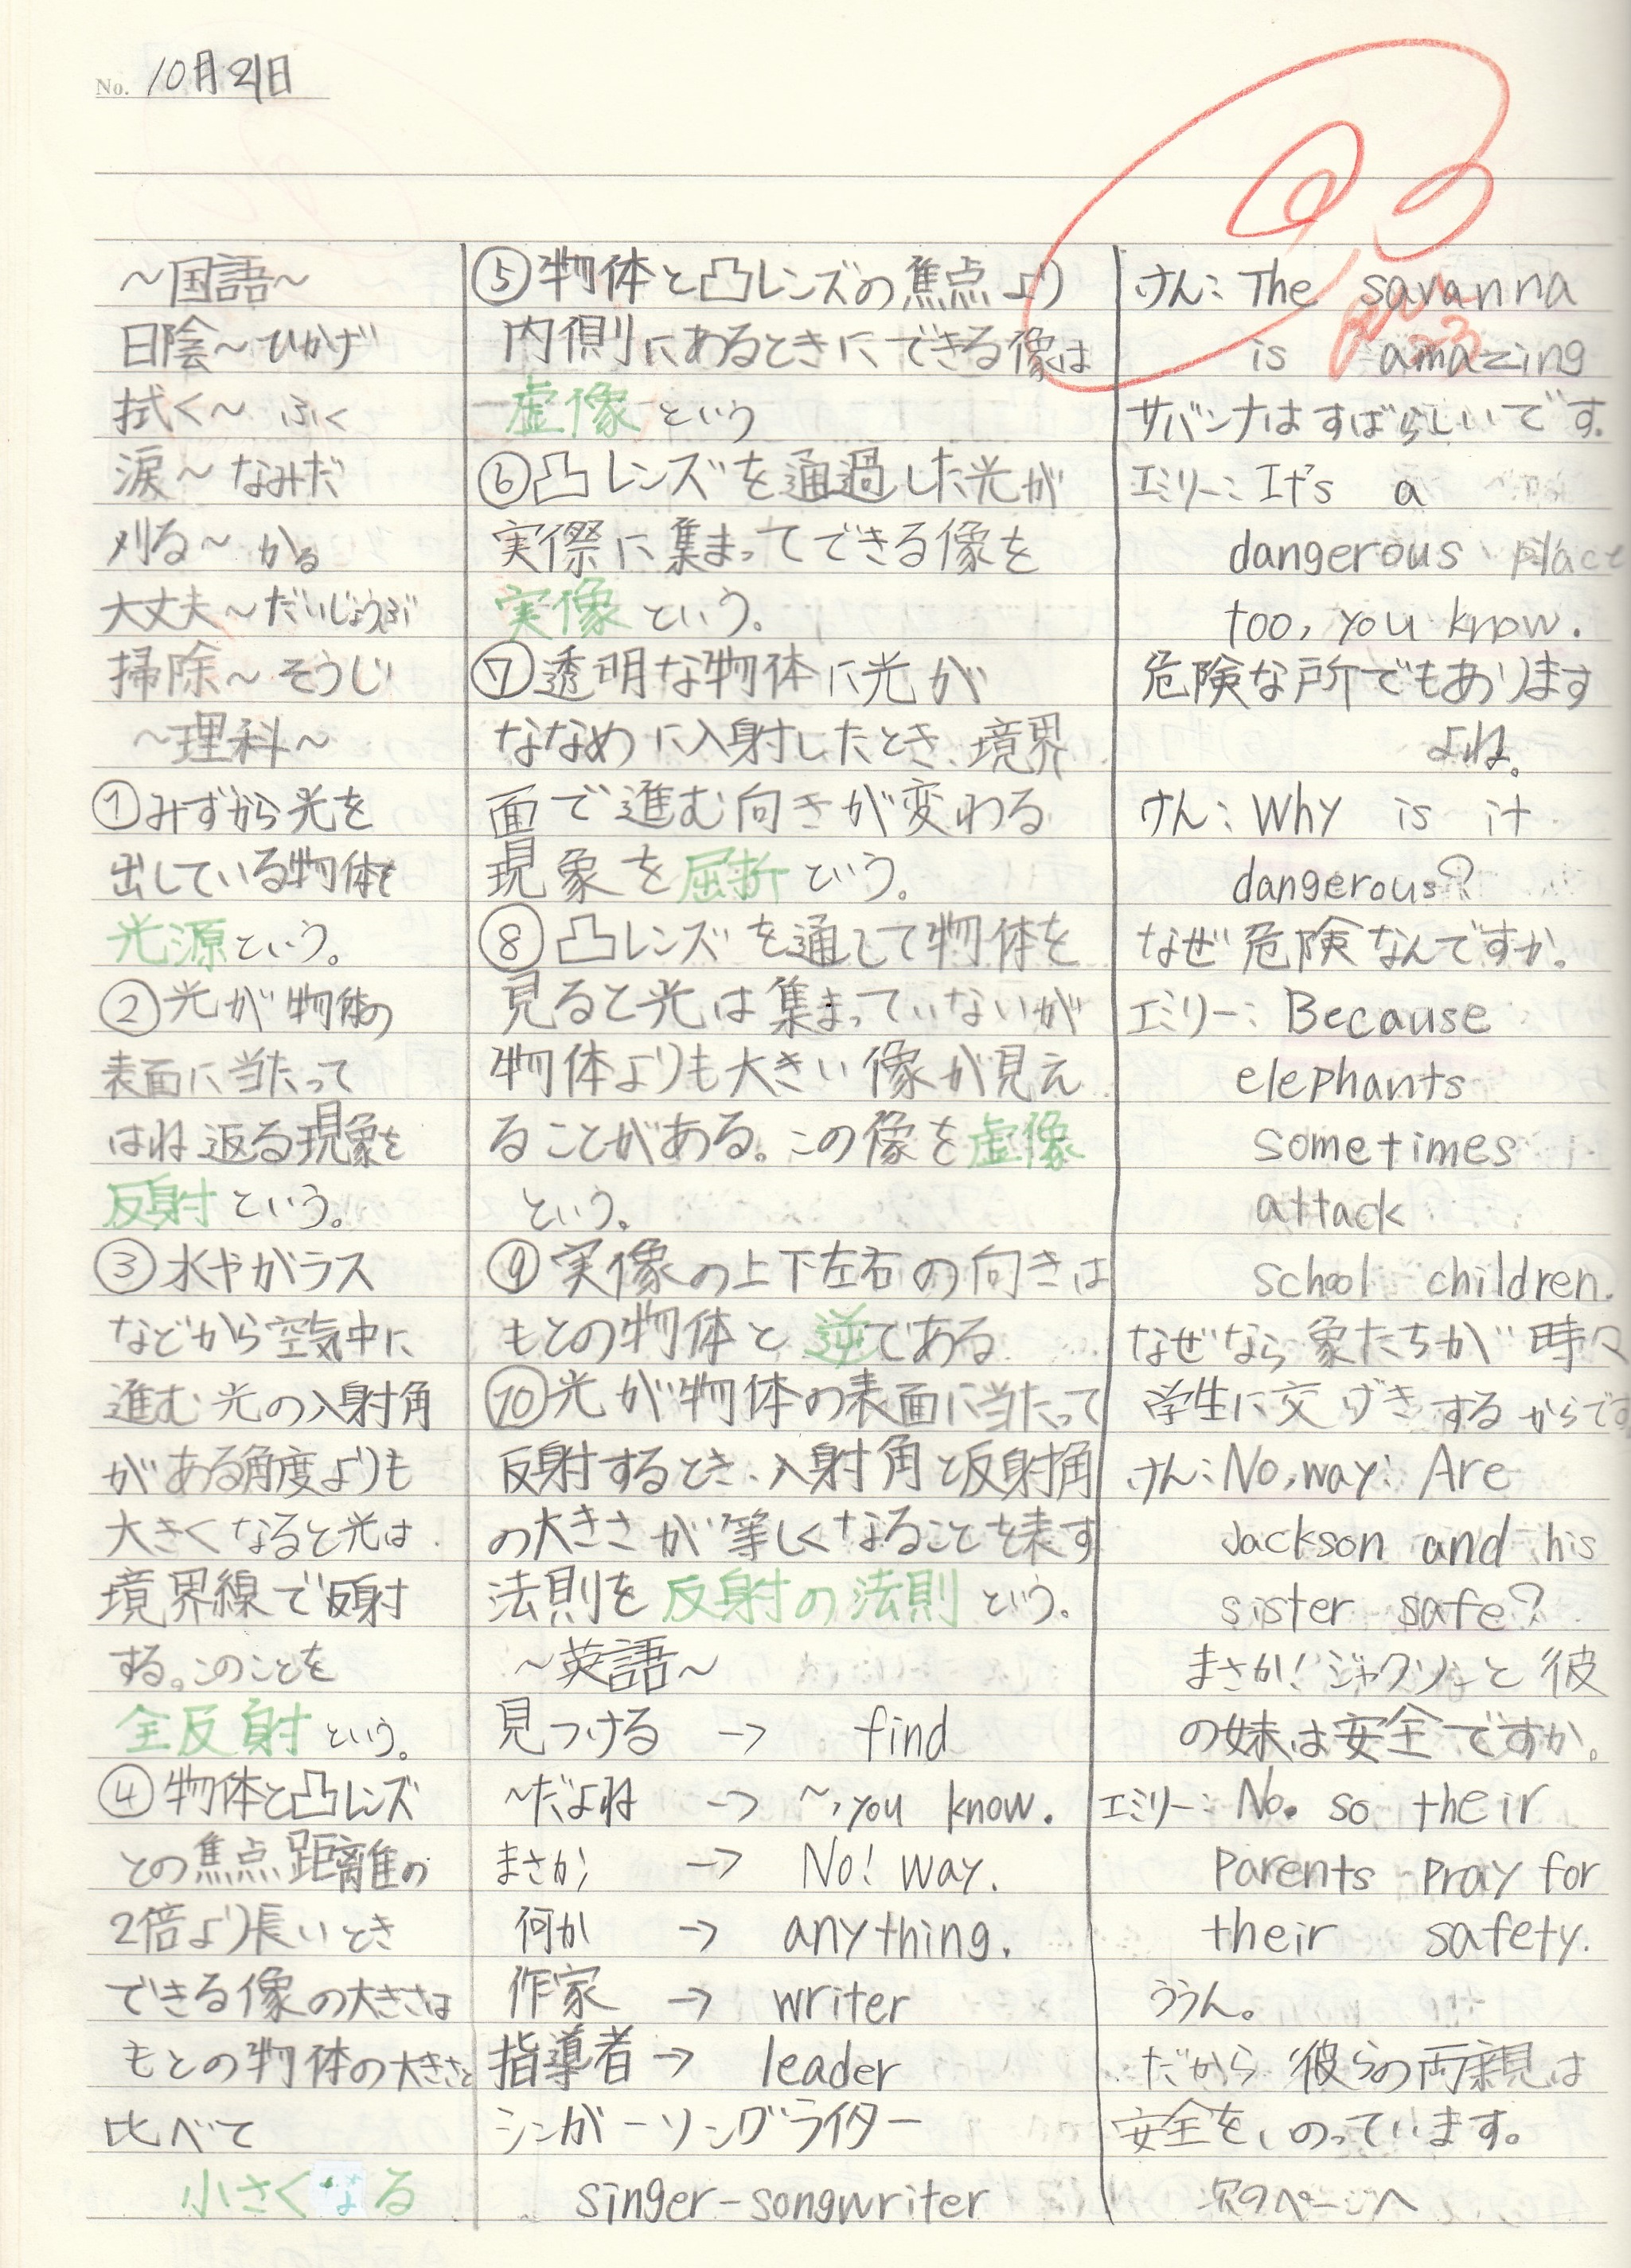 No. 10月21日
～国語～
日陰～ひかげ
拭く～ ふく
涙～なみだ
刈る～かる
大丈夫～だいじょうぶ
掃除～そうじ
～理科～
①みずから光を
出している物体を
光源という。
②光が物体の
表面に当たって
はね返る現象を
反射という。
③水やガラス
などから空気中に
進む光の入射角
がある角度よりも
大きくなると光は
境界線で反射
する。このことを
全反射という。
④物体と凸レンズ
との焦点距離の
2倍より長いとき
できる像の大きさは
もとの物体の大きさと
比べて
小さくなる
⑤物体と凸レンズの焦点より
内側にあるときにできる像は
虚像という
⑥凸レンズを通過した光が
実際に集まってできる像を
実像という。
⑦透明な物体に光が
ななめに入射したとき、境界
面で進む向きが変わる
現象を屈折という。
⑧凸レンズを通して物体を
見ると光は集まっていないが
物体よりも大きい像が見え
ることがある。この像を虚像
という。
⑨実像の上下左右の向きは
もとの物体と逆である
⑩光が物体の表面に当たって
反射するとき、入射角と反射角
の大きさが等しくなることを表す
法則を反射の法則という。
～英語～
見つける → find
～だよね → ～,you know.
まさか → No! way.
何か → anything.
作家 → writer
指導者→ leader
シンガーソングライター
singer-songwriter
けん: The savanna
is amazing
サバンナはすばらしいです。
エミリー: It's a
dangerous place
too, you know.
危険な所でもあります
よね。
けん: Why is it
dangerous?
なぜ危険なんですか。
エミリー: Because
elephants
sometimes
attack
school children.
なぜなら象たちが時々
学生に交げきするからです
けん: No, way! Are
Jackson and his
sister safe?
まさか!ジャクソンと彼
の妹は安全ですか。
エミリー: No. so their
parents pray for
their safety.
ううん。
だから彼らの両親は
安全をいのっています。
次のページへ